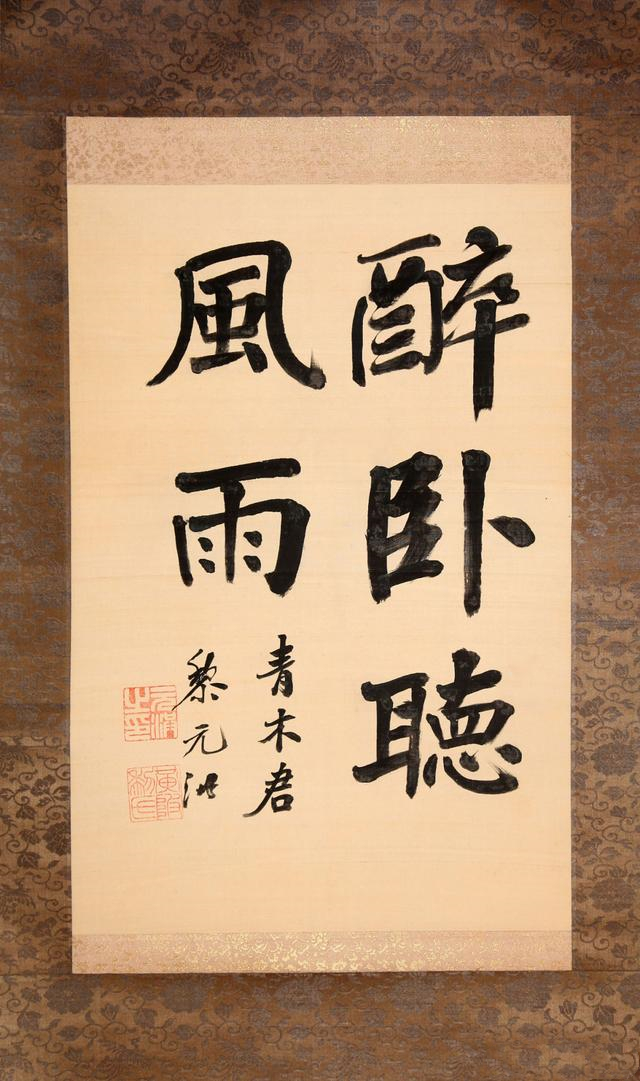 醉卧聽
風雨
青木君
黎元洪